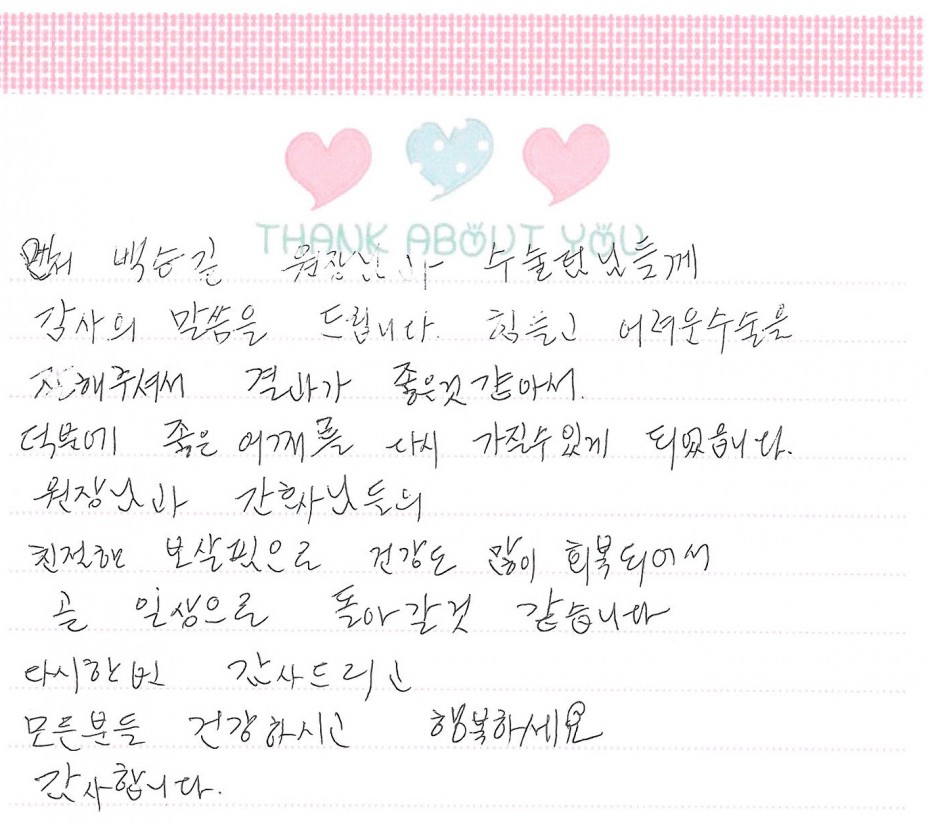 THANK ABOUT YOU
먼저 백승길 원장님과 수술팀님들께
감사의 말씀을 드립니다. 힘들고 어려운수술을
잘해주셔서 결과가 좋은것 같아서.
덕분에 좋은 어깨를 다시 가질수있게 되었습니다.
원장님과 간호사님들의
친절한 보살핌으로 건강도 많이 회복되어서
곧 일상으로 돌아갈것 같습니다
다시한번 감사드리고
모든분들 건강하시고 행복하세요
감사합니다.